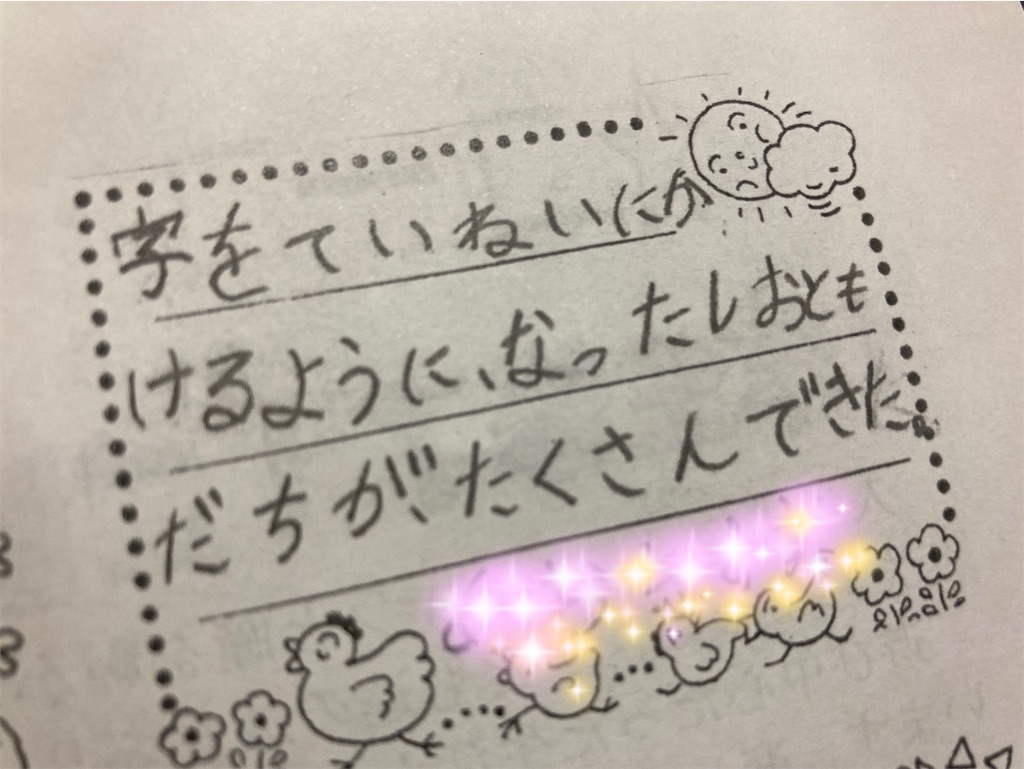 字をていねいにか
けるように、なったしおとも
だちが、たくさんできた。